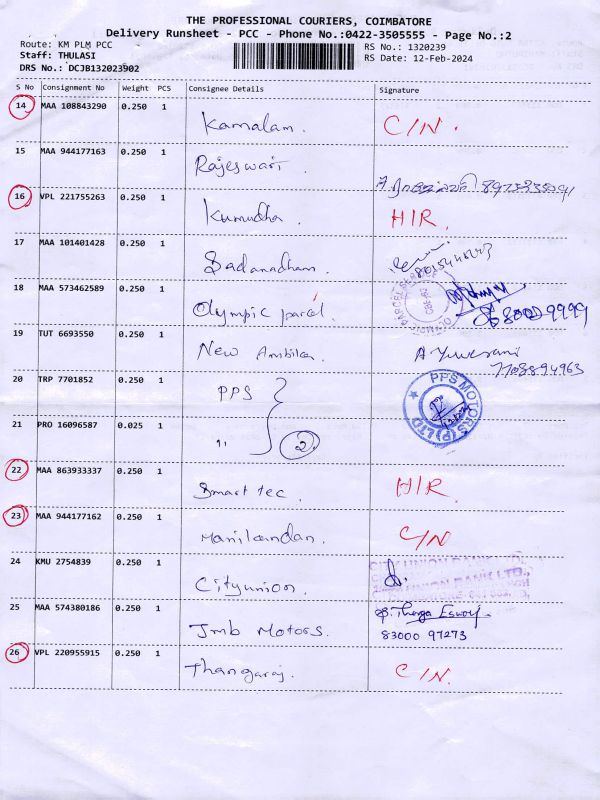 THE PROFESSIONAL COURIERS, COIMBATORE
Delivery Runsheet - PCC - Phone No.:0422-3505555 - Page No.:2
Route: KM PLM PCC RS No.: 1320239
Staff: THULASI RS Date: 12-Feb-2024
DRS No.: DCJB132023902
S No Consignment No Weight PCS Consignee Details Signature
14 MAA 108843290 0.250 1 Kamalam. C/N.
15 MAA 944177163 0.250 1 Rajeswari
16 VPL 221755263 0.250 1 Kumudha. H/R.
17 MAA 101401428 0.250 1 Sadanadham.
18 MAA 573462589 0.250 1 Olympic parcel.
19 TUT 6693550 0.250 1 New A Yuvarani
7708894963
20 TRP 7701852 0.250 1 PPS PPS MOTORS (P) LTD
21 PRO 16096587 0.025 1 " 2
22 MAA 863933337 0.250 1 Smart tec. H/R.
23 MAA 944177162 0.250 1 Manikandan. C/N
24 KMU 2754839 0.250 1 Cityunion. CITY UNION BANK LTD.,
25 MAA 574380186 0.250 1 Jmb Motors. 83000 97273
26 VPL 220955915 0.250 1 Thangaraj. C/N.